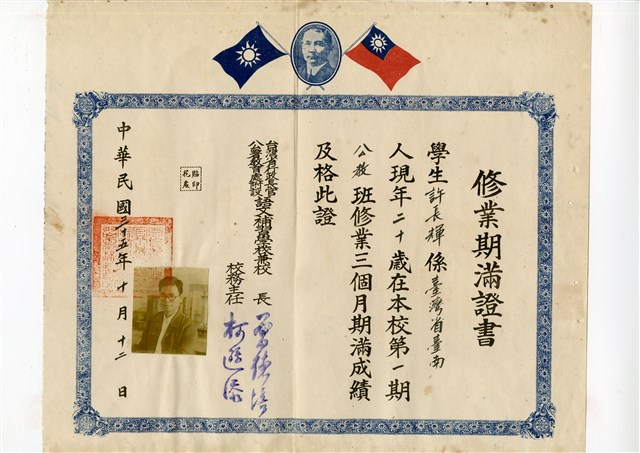 修業期滿證書
學生許長輝係臺灣省臺南
人現年二十歲在本校第一期
公教班修業三個月期滿成績
及格此證
台灣省行政長官
公署教育處附設
語文補習學校兼校長
校務主任
柯遜添
貼印
花處
中華民國三十五年十月十二日